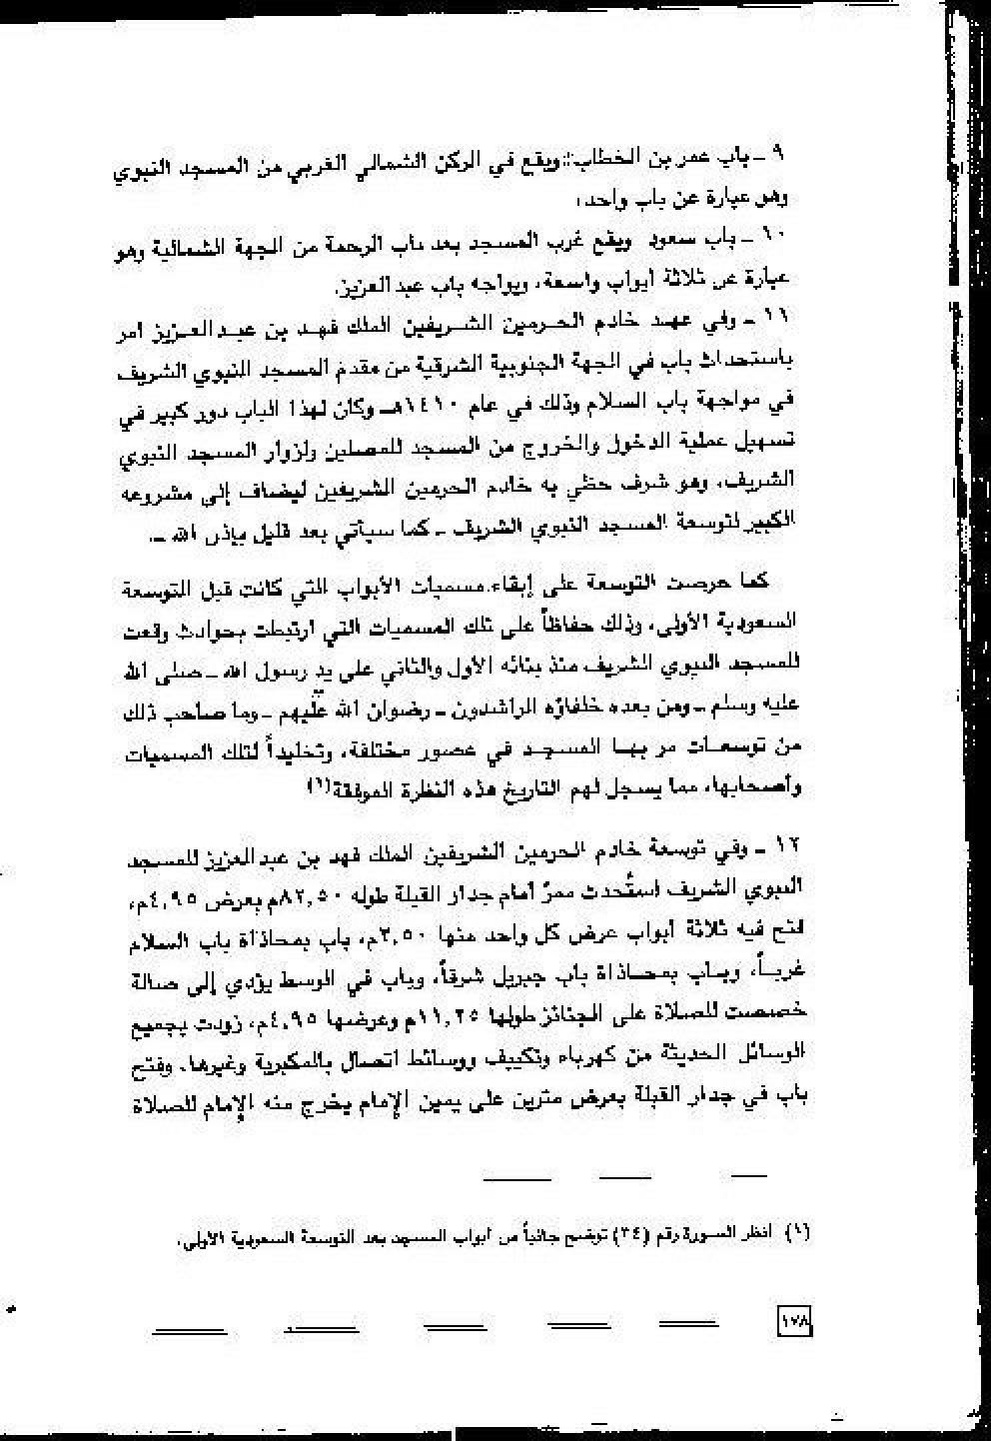 ٩ ـ باب عمر بن الخطاب: ويقع في الركن الشمالي الغربي من المسجد النبوي
وهو عبارة عن باب واحد.
١٠ ـ باب سعود ويقع غرب المسجد بعد باب الرحمة من الجهة الشمالية وهو
عبارة عن ثلاثة أبواب واسعة، ويواجه باب عبد العزيز.
١١ ـ وفي عهد خادم الحرمين الشريفين الملك فهد بن عبد العزيز أمر
باستحداث باب في الجهة الجنوبية الشرقية من مقدم المسجد النبوي الشريف
في مواجهة باب السلام وذلك في عام ١٤١٠هـ وكان لهذا الباب دور كبير في
تسهيل عملية الدخول والخروج من المسجد للمصلين ولزوار المسجد النبوي
الشريف، وهو شرف حظي به خادم الحرمين الشريفين ليضاف إلى مشروعه
الكبير لتوسعة المسجد النبوي الشريف ـ كما سيأتي بعد قليل بإذن الله ـ.
كما حرصت التوسعة على إبقاء مسميات الأبواب التي كانت قبل التوسعة
السعودية الأولى، وذلك حفاظاً على تلك المسميات التي ارتبطت بحوادث وقعت
للمسجد النبوي الشريف منذ بنائه الأول والثاني على يد رسول الله ـ صلى الله
عليه وسلم ـ ومن بعده خلفاؤه الراشدون ـ رضوان الله عليهم ـ وما صاحب ذلك
من توسعات مر بها المسجد في عصور مختلفة، وتخليداً لتلك المسميات
وأصحابها، مما يسجل لهم التاريخ هذه النظرة الموفقة(١)
١٢ ـ وفي توسعة خادم الحرمين الشريفين الملك فهد بن عبد العزيز للمسجد
النبوي الشريف استُحدث ممرٌ أمام جدار القبلة طوله ٨٢,٥٠م بعرض ٤,٩٥م،
فتح فيه ثلاثة أبواب عرض كل واحد منها ٢,٥٠م، باب بمحاذاة باب السلام
غرباً، وباب بمحاذاة باب جبريل شرقاً، وباب في الوسط يؤدي إلى صالة
خصصت للصلاة على الجنائز طولها ١١,٢٥م وعرضها ٤,٩٥م، زودت بجميع
الوسائل الحديثة من كهرباء وتكييف ووسائط اتصال بالمكبرية وغيرها، وفتح
باب في جدار القبلة بعرض مترين على يمين الإمام يخرج منه الإمام للصلاة
(١) انظر الصورة رقم (٣٤) توضح جانباً من أبواب المسجد بعد التوسعة السعودية الأولى.
١٧٨